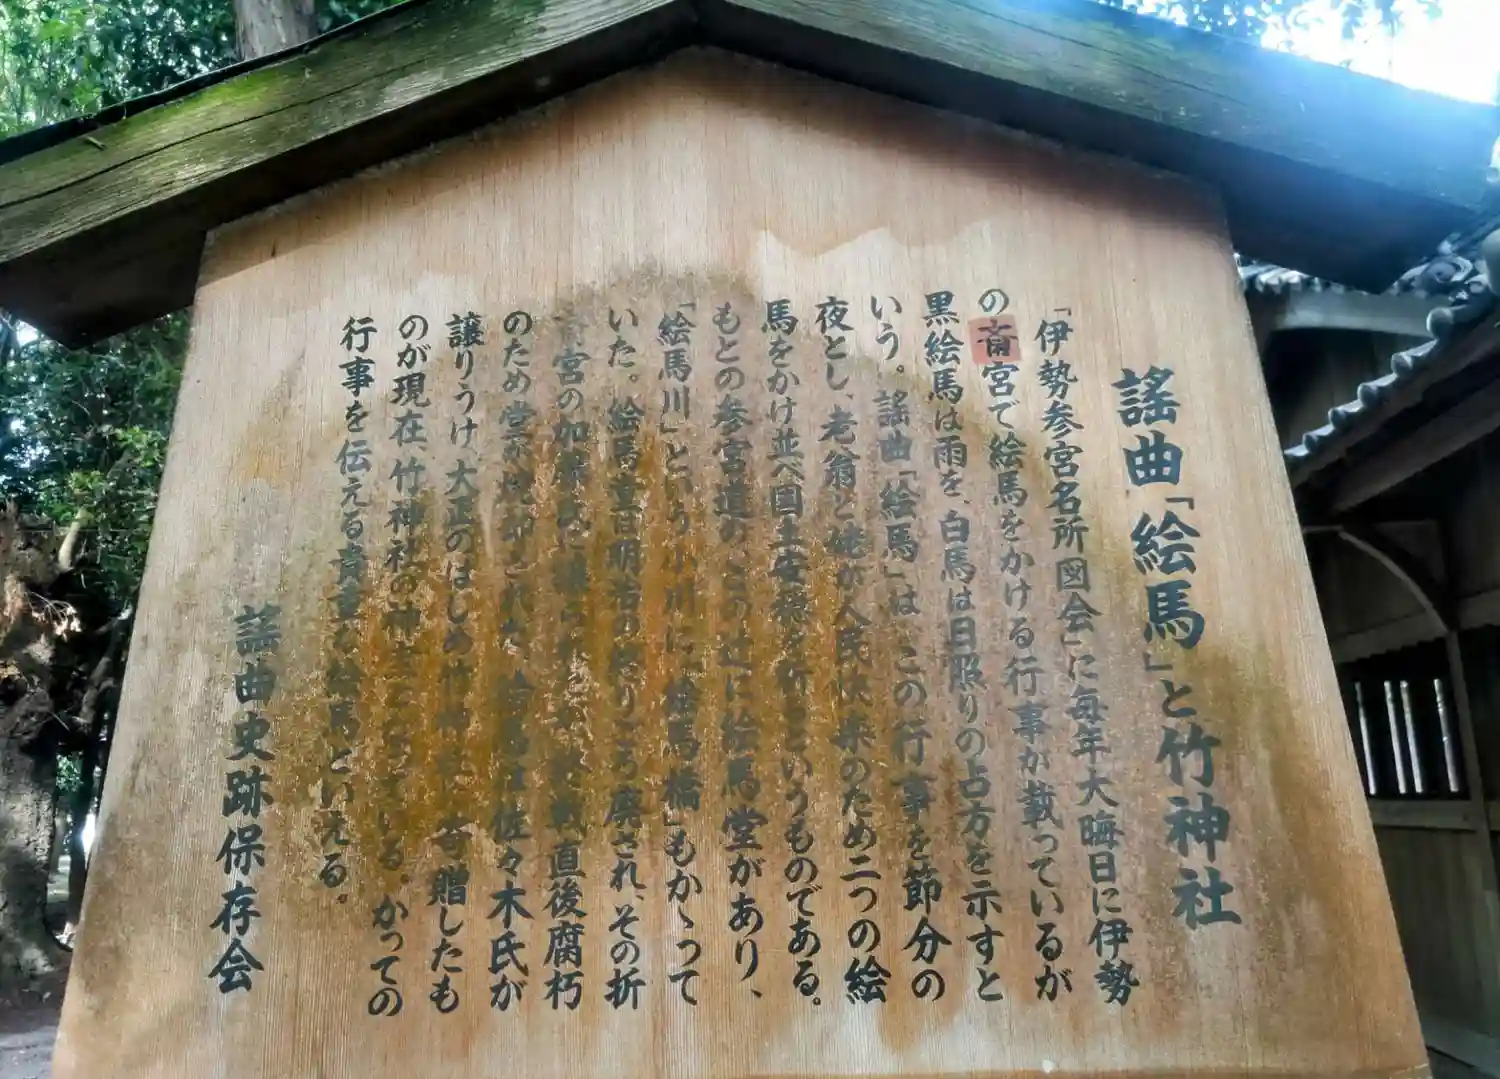 謡曲「絵馬」と竹神社
「伊勢参宮名所図会」に毎年大晦日に伊勢
の斎宮で絵馬をかける行事が載っているが
黒絵馬は雨を、白馬は日照りの占方を示すと
いう。謡曲「絵馬」は、この行事を節分の
夜とし、老翁と姥が人民快楽のため二つの絵
馬をかけ並べ国土安穏を祈るというものである。
もとの参宮道の、この辻に絵馬堂があり、
「絵馬川」という小川に、「絵馬橋」もかゝって
いた。絵馬堂は明治の終りごろ廃され、その折
宮の加藤氏に譲られたが、大戦直後腐朽
のため堂が焼却された。絵馬は佐々木氏が
譲りうけ、大正のはじめ竹神社に寄贈したも
のが現在、竹神社の神宝となっている。かつての
行事を伝える貴重な絵馬といえる。
謡曲史跡保存会